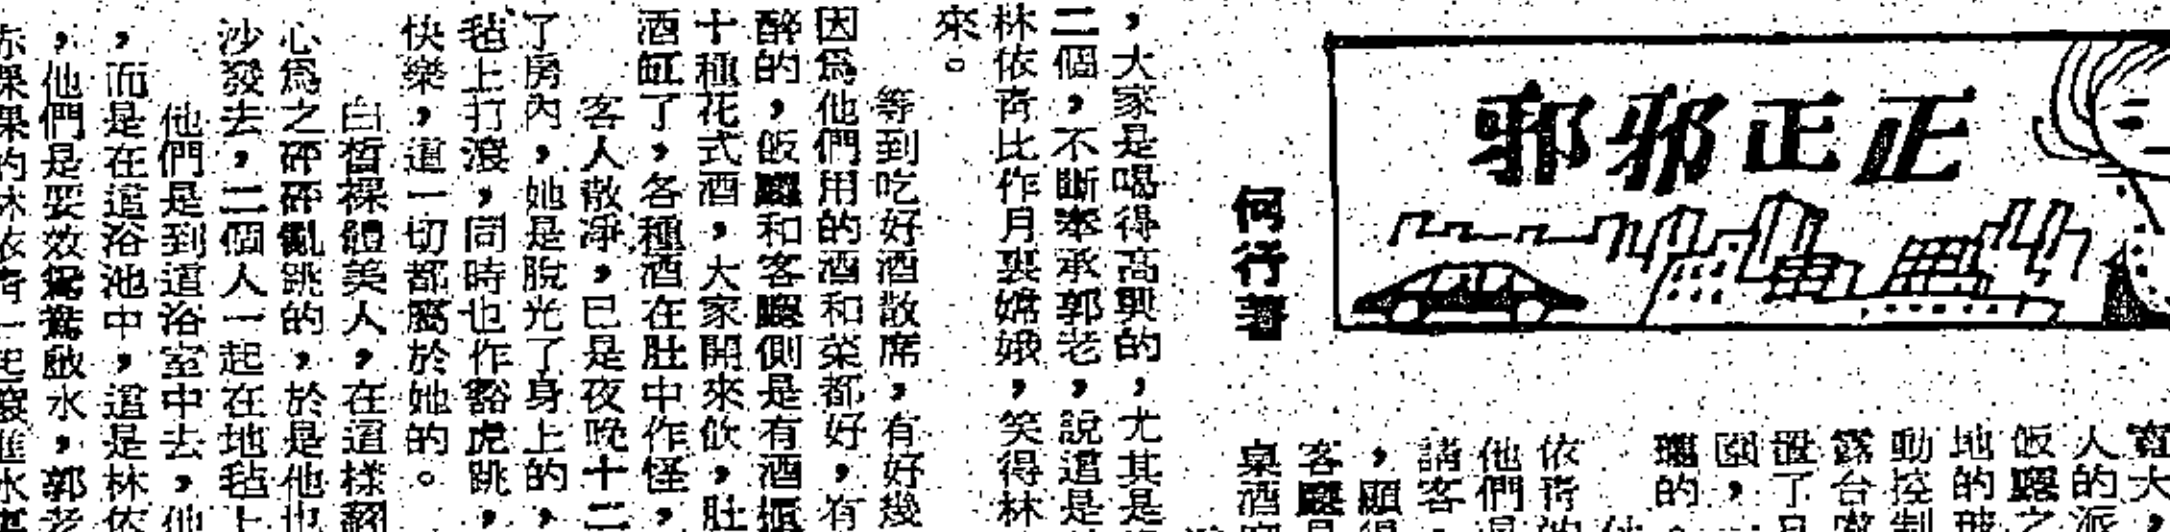 正正邪邪
何行著
大，
人的派
飯廳之
地的玻
動控制
露台
置了
園，
的。
依靑的
他們是
請客，
，顧得
客廳是
桌酒席
，大家是喝得高興的，尤其是
二個，不斷奉承郭老，說這是
林依靑比作月裏嫦娥，笑得林
來。
等到吃好酒散席，有好幾
因爲他們用的酒和菜都好，有
醉的，飯廳和客廳側是有酒
十種花式酒，大家開來飲，肚
酒缸了，各種酒在肚中作怪，
客人散淨，已是夜晚十二
了房內，她是脫光了身上的，
毡上打滾，同時也作豁虎跳，
快樂，這一切都屬於她的。
白皙裸體美人，在這樣
心爲之砰砰亂跳的，於是他也
沙發去，二個人一起在地毡上
他們是到這浴室中去，他
，而是在這浴池中，這是林依
，他們是要效鴛鴦戲水，郭老
赤裸裸的林依靑一起滾進水